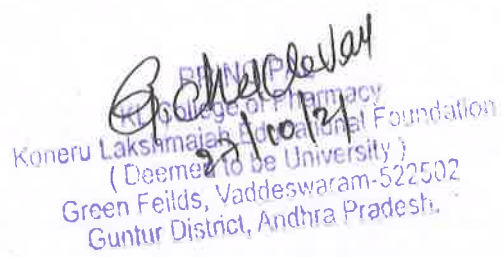 PRINCIPAL
KL College of Pharmacy
Koneru Lakshmaiah Educational Foundation
( Deemed to be University )
Green Feilds, Vaddeswaram-522502
Guntur District, Andhra Pradesh.
27/10/21